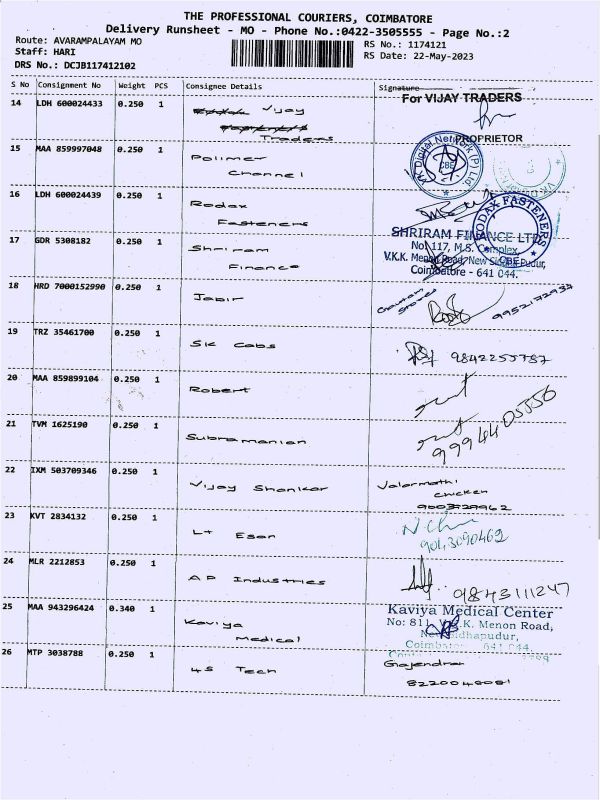 THE PROFESSIONAL COURIERS, COIMBATORE
Delivery Runsheet - MO - Phone No.:0422-3505555 - Page No.:2
Route: AVARAMPALAYAM MO
Staff: HARI
DRS No.: DCJB117412102
RS No.: 1174121
RS Date: 22-May-2023
S No Consignment No Weight PCS Consignee Details Signature
14 LDH 600024433 0.250 1 Vijay
Traders
For VIJAY TRADERS
PROPRIETOR
15 MAA 859997048 0.250 1 Polimer
Channel
Digital Network (P) Ltd.
CBE
16 LDH 600024439 0.250 1 Rodax
Fasteners
RODAX FASTENERS
CBE
17 GDR 5308182 0.250 1 Shriram
Finance
SHRIRAM FINANCE LTD
No. 117, M.S. Complex,
V.K.K. Menon Road, New Siddhapudur,
Coimbatore - 641 044.
18 HRD 7000152990 0.250 1 Jabir
Gowtam
Stores
9952172934
19 TRZ 35461700 0.250 1 SK Cabs
9842255787
20 MAA 859899104 0.250 1 Robert
21 TVM 1625190 0.250 1 Subramanian
9994405556
22 IXM 503709346 0.250 1 Vijay Shankar
Valarmathi
chicken
23 KVT 2834132 0.250 1 Lt Esan
9043090462
24 MLR 2212853 0.250 1 AP Industries
9843111247
25 MAA 943296424 0.340 1 Kaviya
Medical
Kaviya Medical Center
No: 811, V.K.K. Menon Road,
26 MTP 3038788 0.250 1 4S Tech
Gajendran
8220048081